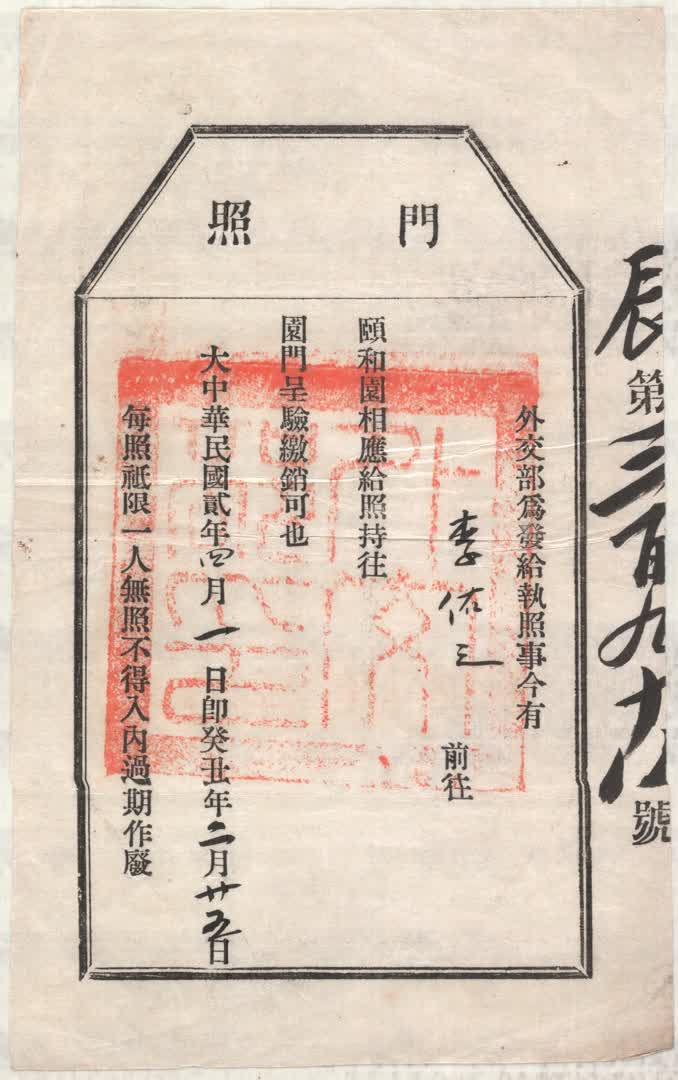 門照
辰第三百九十號
外交部爲發給執照事今有
李佑之前往
頤和園相應給照持往
園門呈驗繳銷可也
大中華民國貳年四月一日卽癸丑年二月廿五日
每照祇限一人無照不得入內過期作廢